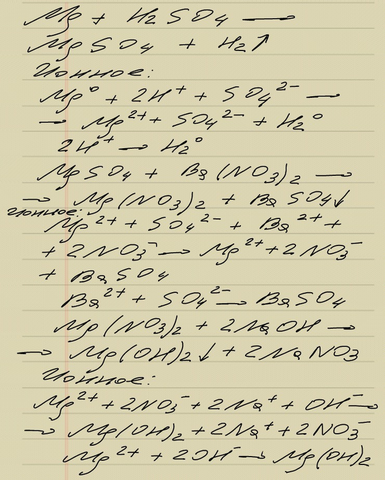 Mg + H₂SO₄ →
MgSO₄ + H₂↑
Ионное:
Mg⁰ + 2H⁺ + SO₄²⁻ →
→ Mg²⁺ + SO₄²⁻ + H₂⁰
2H⁺ → H₂⁰
MgSO₄ + Ba(NO₃)₂ →
→ Mg(NO₃)₂ + BaSO₄↓
ионное:
Mg²⁺ + SO₄²⁻ + Ba²⁺ +
+ 2NO₃⁻ → Mg²⁺ + 2NO₃⁻
+ BaSO₄
Ba²⁺ + SO₄²⁻ → BaSO₄
Mg(NO₃)₂ + 2NaOH →
→ Mg(OH)₂↓ + 2NaNO₃
Ионное:
Mg²⁺ + 2NO₃⁻ + 2Na⁺ + OH⁻ →
→ Mg(OH)₂ + 2Na⁺ + 2NO₃⁻
Mg²⁺ + 2OH⁻ → Mg(OH)₂